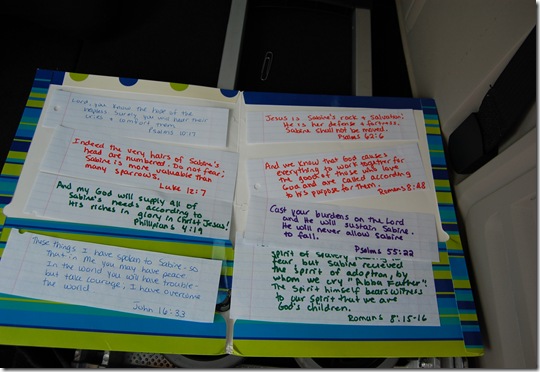 Lord, you know the hope of the
helpless. Surely you will hear their
cries & comfort them.
Psalms 10:17
Indeed the very hairs of Sabine's
head are numbered. Do not fear;
Sabine is more valuable than
many sparrows.
Luke 12:7
And my God will supply all of
Sabine's needs according to
His riches in glory in Christ Jesus!
Phillpians 4:19
These things I have spoken to Sabine - so
that in me you may have peace.
In the world you will have trouble -
but take courage, I have overcome
the world
John 16:33
Jesus is Sabine's rock & salvation!
He is her defense & fortress.
Sabine shall not be moved.
Psalms 62:6
And we know that God causes
everything to work together for
the good of those who love
God and are called according
to his purpose for them.
Romans 8:28
Cast your burdens on the Lord
and He will sustain Sabine.
He will never allow Sabine
to fall.
Psalms 55:22
spirit of slavery
fear, but Sabine recieved
the spirit of adoption, by
whom we cry "Abba Father".
The spirit himself bears witness
to our spirit that we are
God's children.
Romans 8:15-16